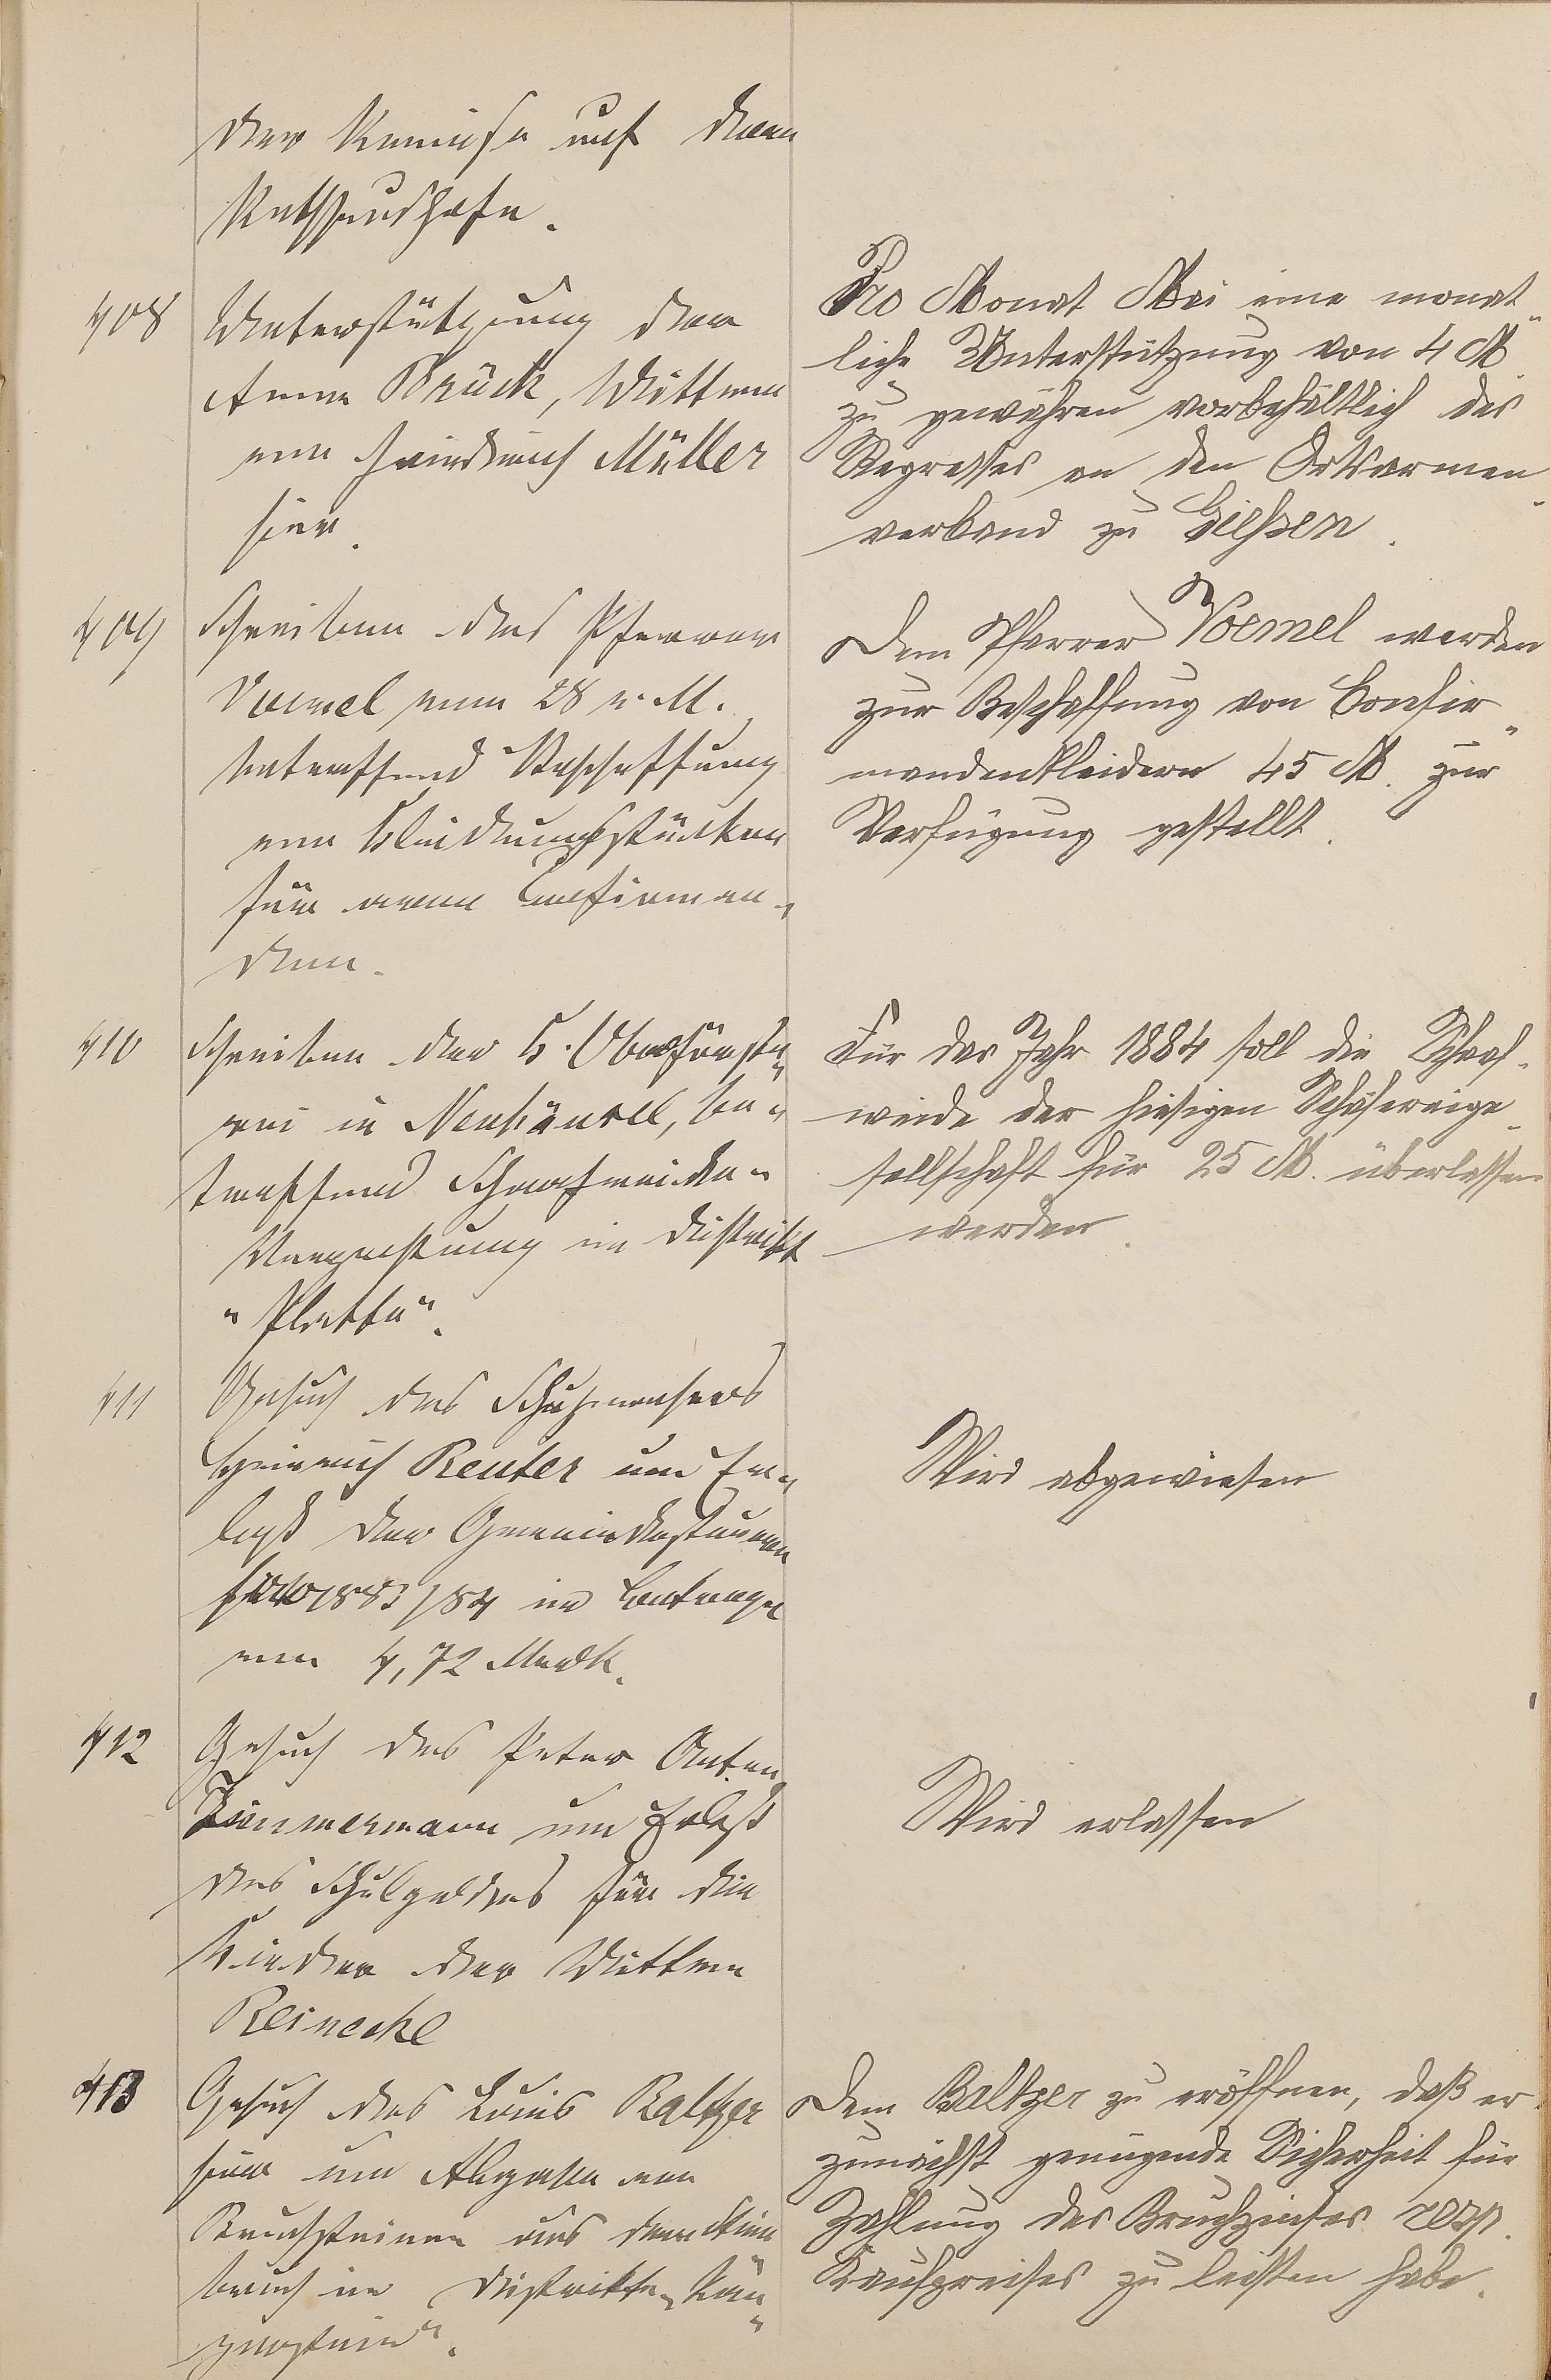 der Remise auf dem
Rathhaushofe.
408
Unterstützung der
Anna Brück, Wittwe
von Friedrich Müller
hier.
Pro Monat Mai eine monat„
liche Unterstützung von 4 M.
zu gewähren vorbehältlich des
Regresses an den Ortsarmen„
verband zu Gießen.
409
Schreiben des Pfarrers
Voemel vom 28 v. M.
betreffend Beschaffung
von Kleidungsstücken
für arme Confirman„
den.
Dem Pfarrer Voemel werden
zur Beschaffung von Confir„
mandenkleidern 45 M. zur
Verfügung gestellt.
410
Schreiben der K. Oberförste„
rei in Neuhäusel, be„
treffend Schaafweide„
Verpachtung im Distrikt
„Platte“.
Für das Jahr 1884 soll die Schaf„
weide der hiesigen Schäfereige„
sellschaft für 25 M. überlassen
werden.
411
Gesuch des Schuhmachers
Heinrich Reuter um Er„
laß der Gemeindesteuern
pro 1883/84 im Betrage
von 4,72 Mark.
Wird abgewiesen
412
Gesuch des Peter Anton
Zimmermann um Erlaß
des Schulgeldes für die
Kinder der Wittwe
Reinecke
Wird erlassen
413
Gesuch des Louis Baltzer
hier um Abgabe von
Bruchsteinen aus dem Stein
bruch im Distrikte
Dem Baltzer zu eröffnen, daß er
zunächst genügende Sicherheit für
Zahlung des Bruchzinses resp.
Kaufpreises zu leisten habe.